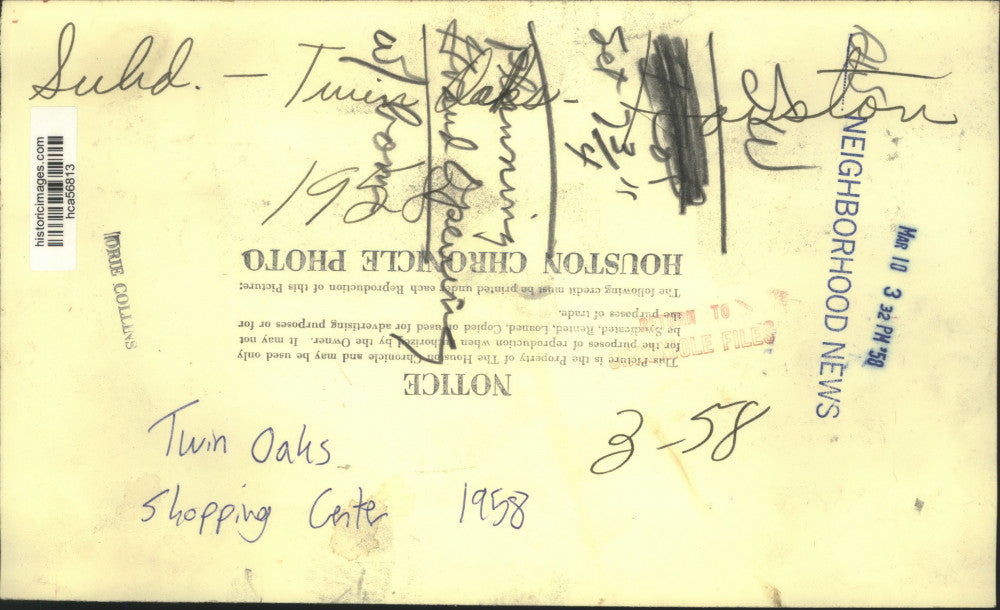 Subd. - Twin Oaks - Houston
1958
historicimages.com
hca56813
w/ home
Planning
Grand Opening
Set 73/4"
NEIGHBORHOOD NEWS
MAR 10 3 32 PM '58
TORIE COLLINS
NOTICE
This Picture is the Property of The Houston Chronicle and may be used only
for the purposes of reproduction when authorized by the Owner. It may not
be Syndicated, Rented, Loaned, Copied or used for advertising purposes or for
the purposes of trade.
The following credit must be printed under each Reproduction of this Picture:
HOUSTON CHRONICLE PHOTO
RETURN TO
CHRONICLE FILES
3-58
Twin Oaks
Shopping Center 1958